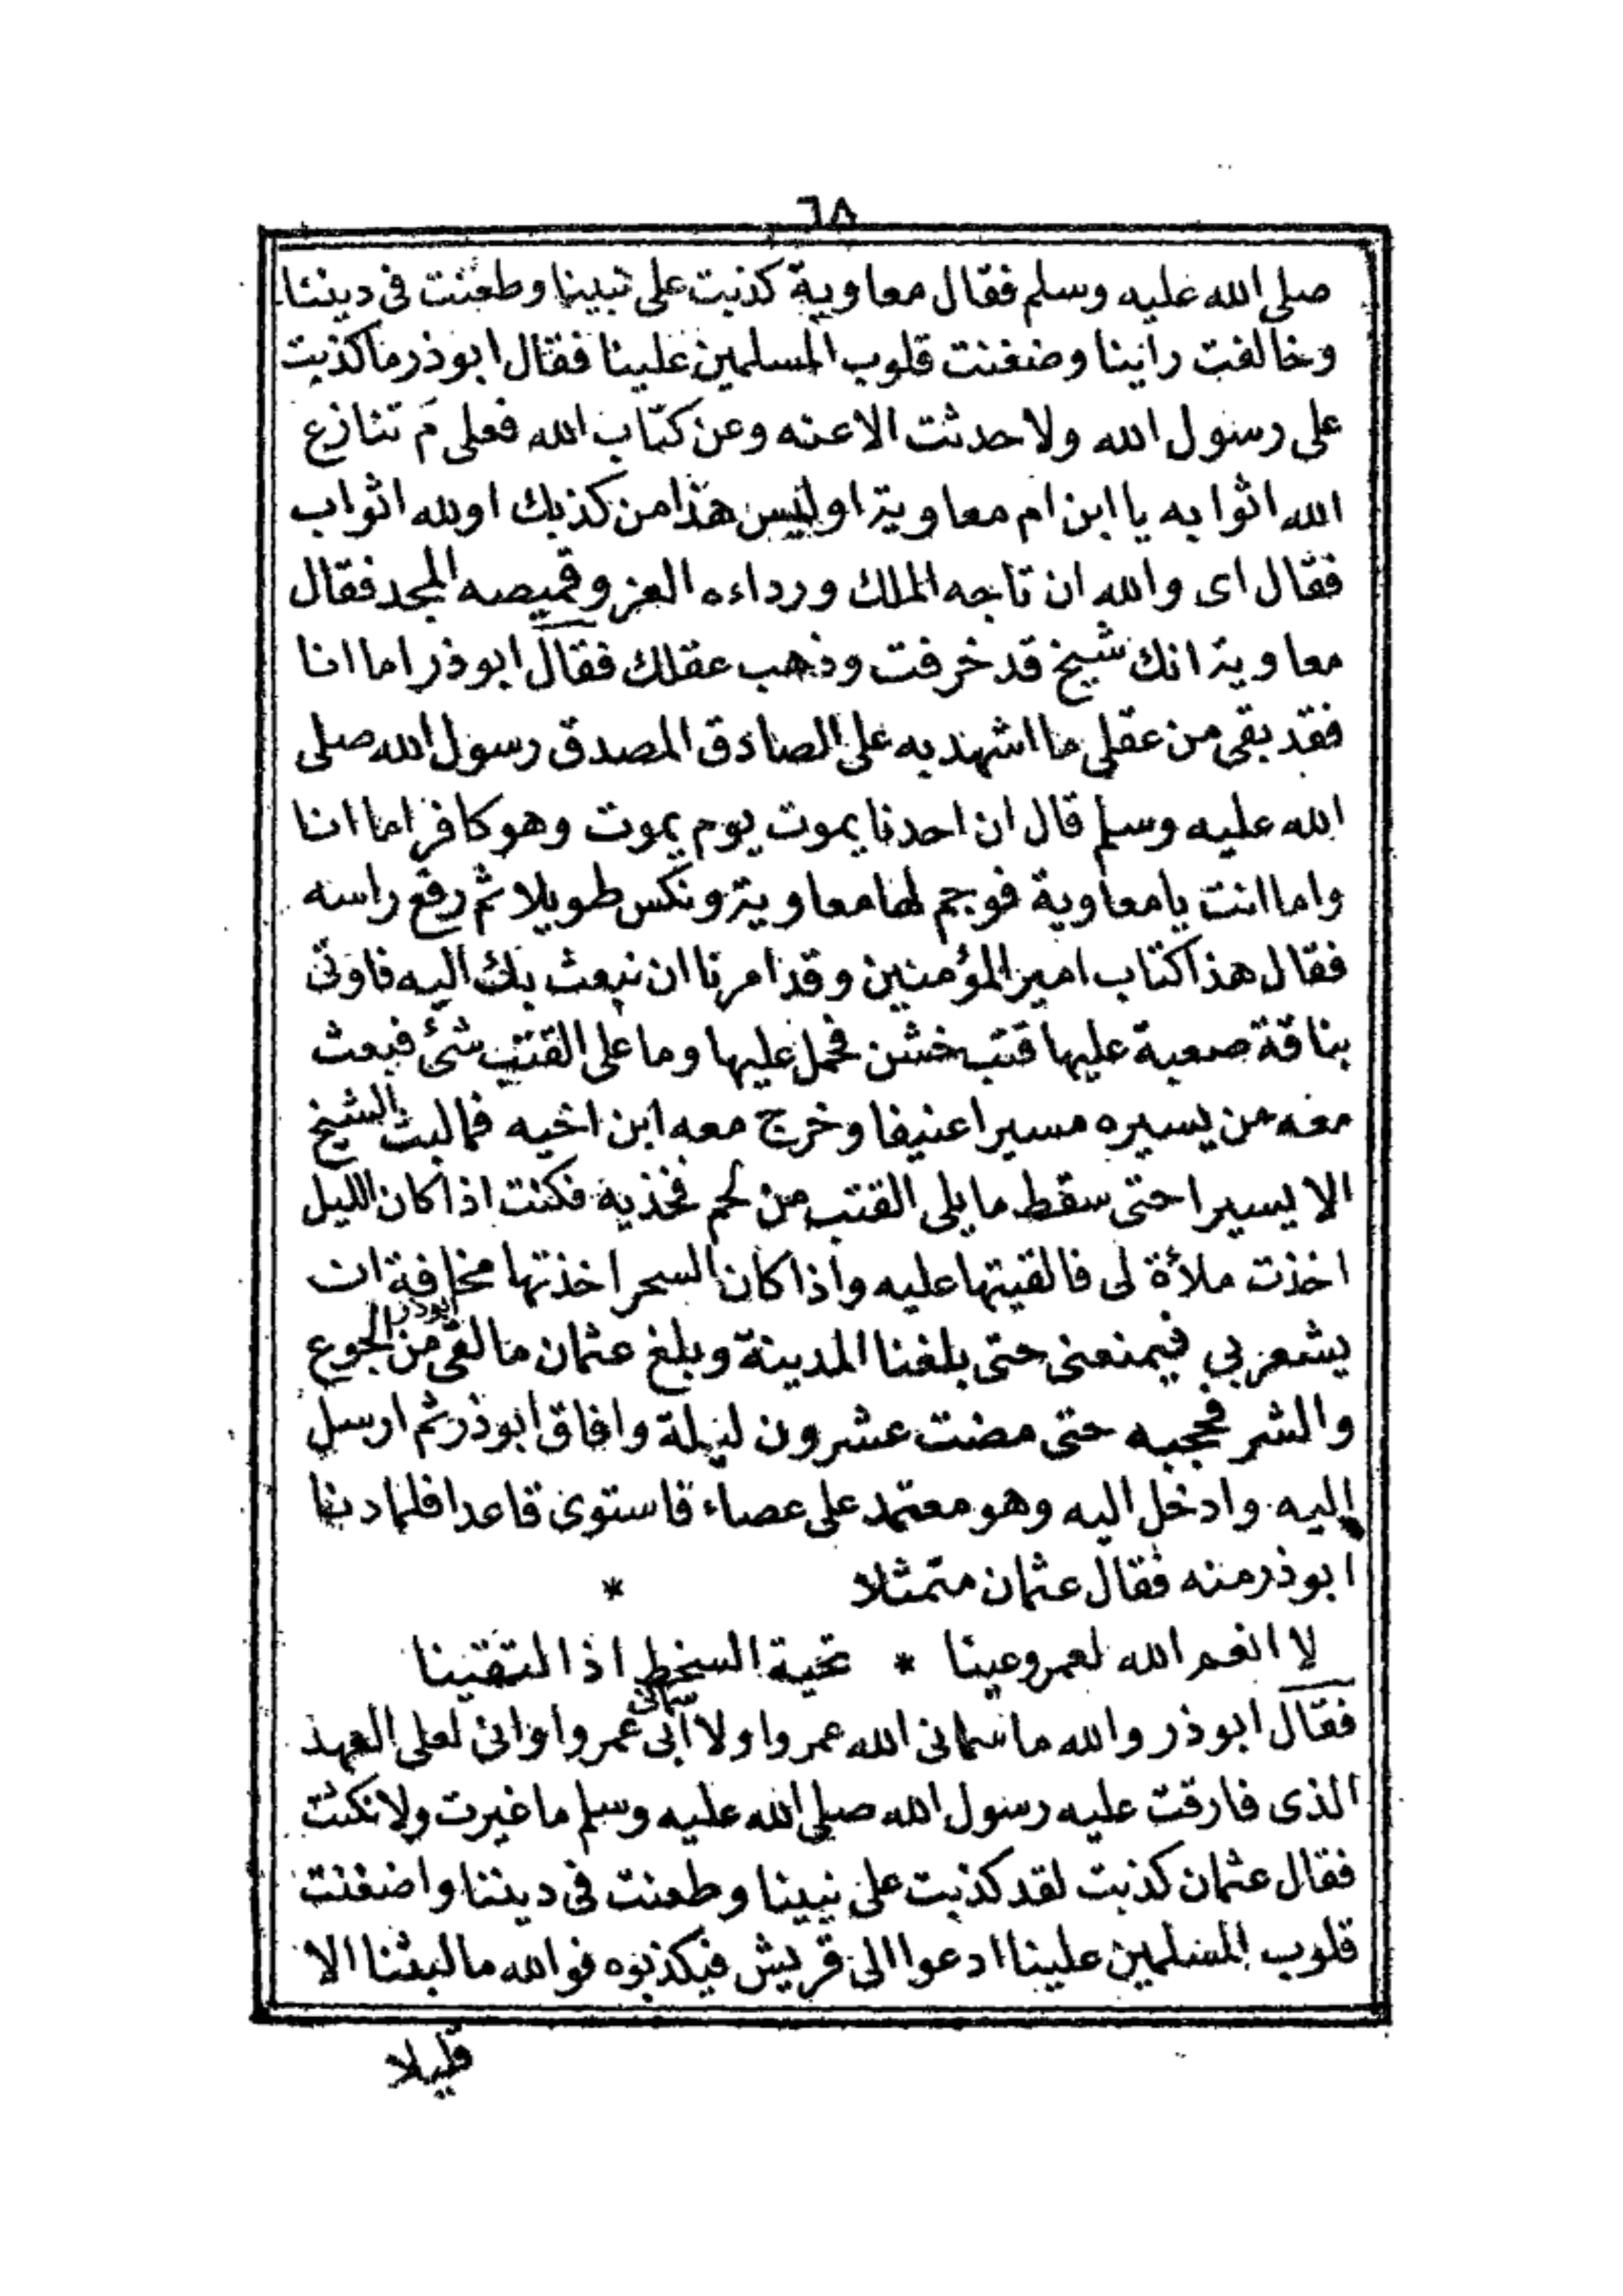 ٦٨
صلى الله عليه وسلم فقال معاوية كذبت على نبينا وطعنت فى ديننا
وخالفت راينا وضغنت قلوب المسلمين علينا فقال ابوذر ما كذبت
على رسول الله ولا حدثت الا عنه وعن كتاب الله فعلى مَ تنازع
الله اثوابه يا ابن ام معاوية اوليس هذا من كذبك اولله اثواب
فقال اى والله ان تاجه الملك ورداءه العز وقميصه المجد فقال
معاوية انك شيخ قد خرفت وذهب عقلك فقال ابوذر اما انا
فقد بقى من عقلى ما اشهد به على الصادق المصدق رسول الله صلى
الله عليه وسلم قال ان احدنا يموت يوم يموت وهو كافر اما انا
واما انت يا معاوية فوجم لها معاوية ونكس طويلا ثم رفع راسه
فقال هذا كتاب امير المؤمنين وقد امرنا ان نبعث بك اليه فاوتى
بناقة صعبة عليها قتب خشن فحمل عليها وما على القتب شئ فبعث
معه من يسيره مسيرا عنيفا وخرج معه ابن اخيه فما لبث الشيخ
الا يسيرا حتى سقط ما يلى القتب من لحم فخذيه فكنت اذا كان الليل
اخذت ملأة لى فالقيتها عليه واذا كان السحر اخذتها مخافة ان
يشعر بي فيمنعنى حتى بلغنا المدينة وبلغ عثمان ما لقى ابوذر من الجوع
والشر فحجبه حتى مضت عشرون ليلة وافاق ابوذر ثم ارسل
اليه وادخل اليه وهو معتمد على عصاء فاستوى قاعدا فلما دنا
ابوذر منه فقال عثمان متمثلا *
لا انعم الله لعمرو عينا * تحية السخط اذا التقينا
فقال ابوذر والله ما سمانى الله عمروا ولا ابى سمانى عمروا وانى لعلى العهد
الذى فارقت عليه رسول الله صلى الله عليه وسلم ما غيرت ولا نكثت
فقال عثمان كذبت لقد كذبت على نبينا وطعنت فى ديننا واضغنت
قلوب المسلمين علينا ادعوا الى قريش فيكذبوه فوالله ما لبثنا الا
قليلا